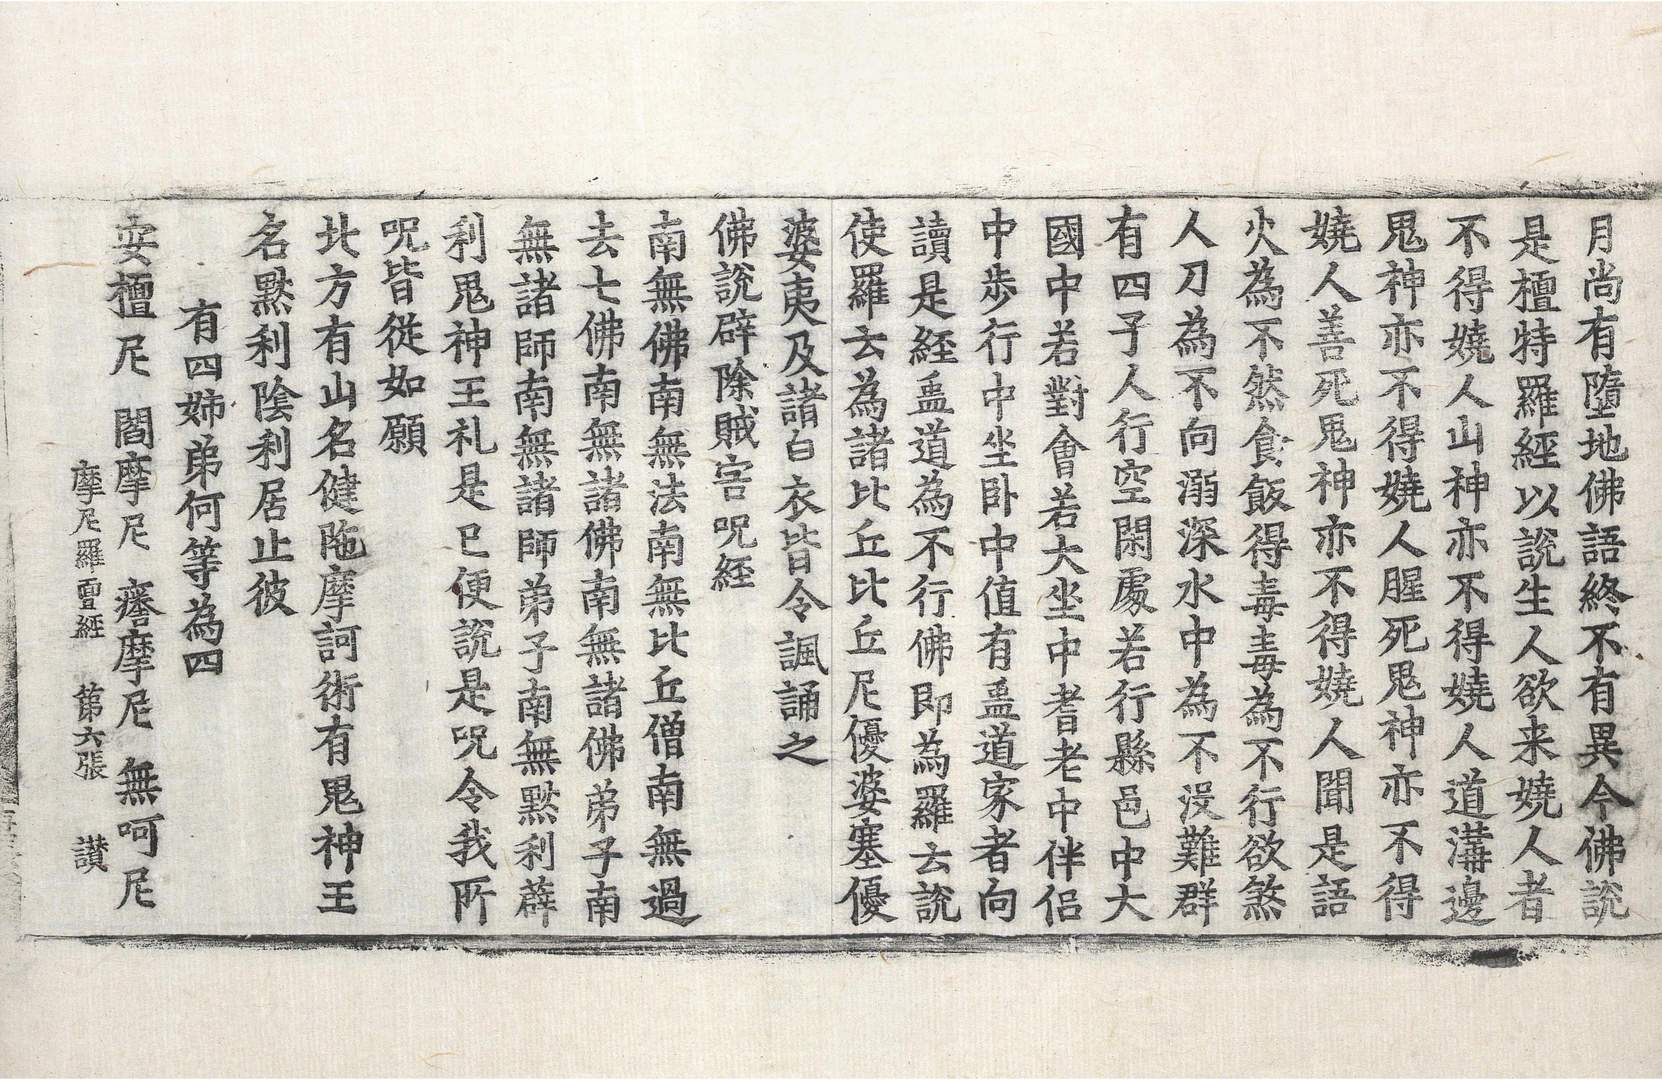 月尚有墮地佛語終不有異今佛說
是檀特羅經以說生人欲来嬈人者
不得嬈人山神亦不得嬈人道溝邊
鬼神亦不得嬈人腥死鬼神亦不得
嬈人善死鬼神亦不得嬈人聞是語
火為不然食飯得毒毒為不行欲煞
人刀為不向溺深水中為不没難群
有四子人行空閑處若行縣邑中大
國中若對會若大坐中耆老中伴侣
中步行中坐卧中值有盂道家者向
讀是經盂道為不行佛即為羅云說
使羅云為諸比丘比丘尼優婆塞優
婆夷及諸白衣皆令諷誦之
佛說辟除賊害呪経
南無佛南無法南無比丘僧南無過
去七佛南無諸佛南無諸佛弟子南
無諸師南無諸師弟子南無黙利薜
利鬼神王礼是已便說是呪令我所
呪皆從如願
北方有山名健陁摩訶術有鬼神王
名黙利陰利居止彼
有四姉弟何等為四
安檀尼 閻摩尼 㿉摩尼 無呵尼
摩尼羅亶経 第六張 讃